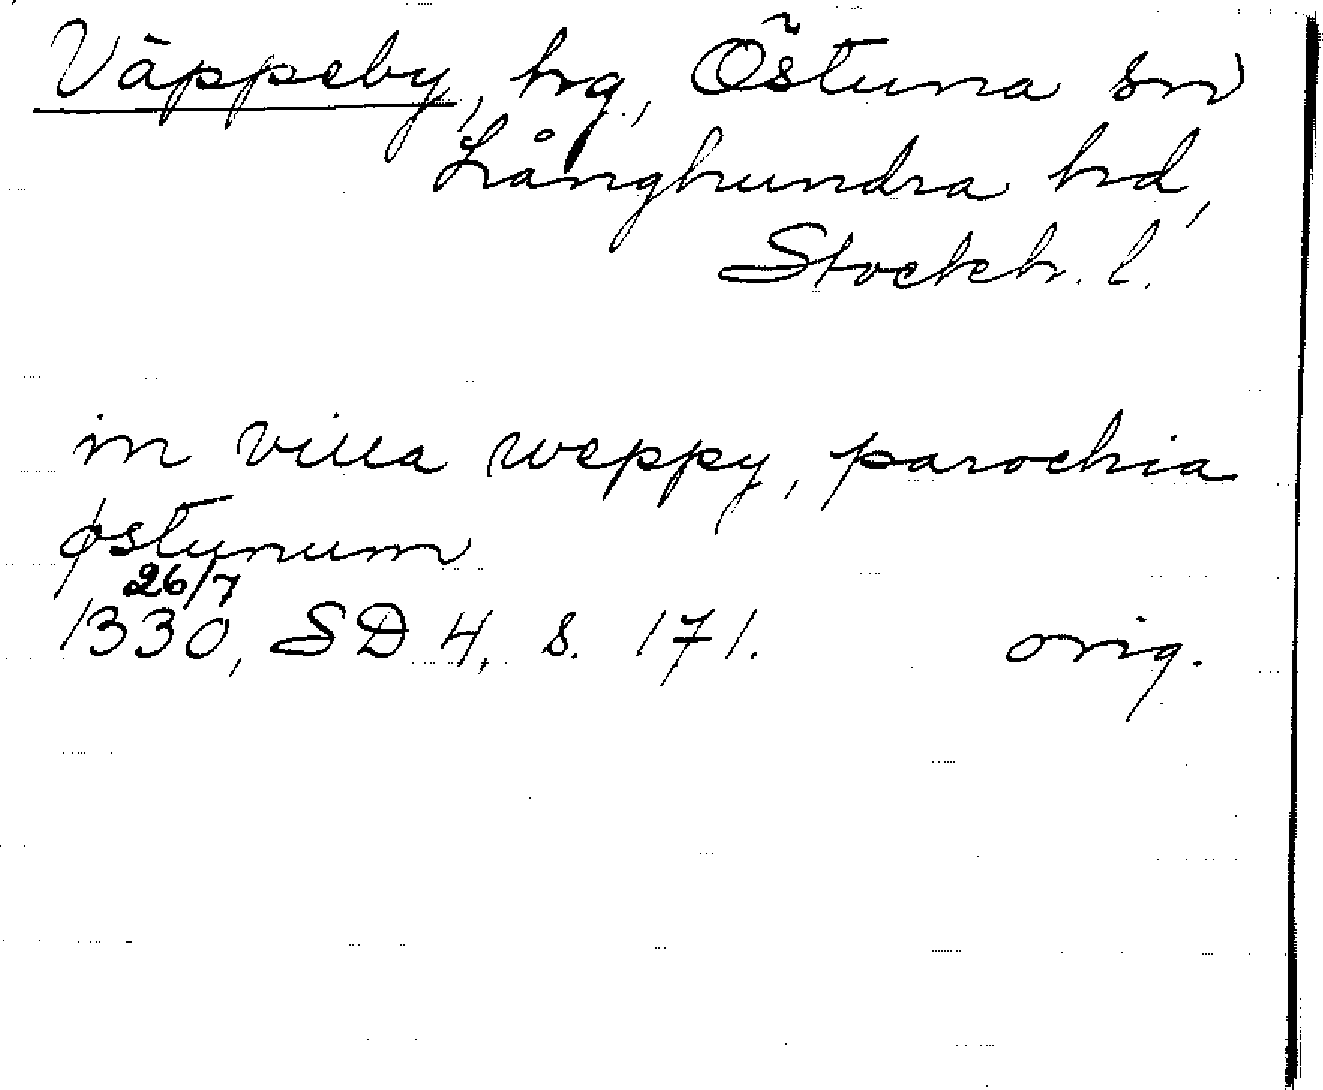 Väppeby, hg, Östuna sn
Långhundra hd,
Stockh. l.
in villa weppy, parochia
østunum
26/7
1330, SD 4, s. 171. orig.